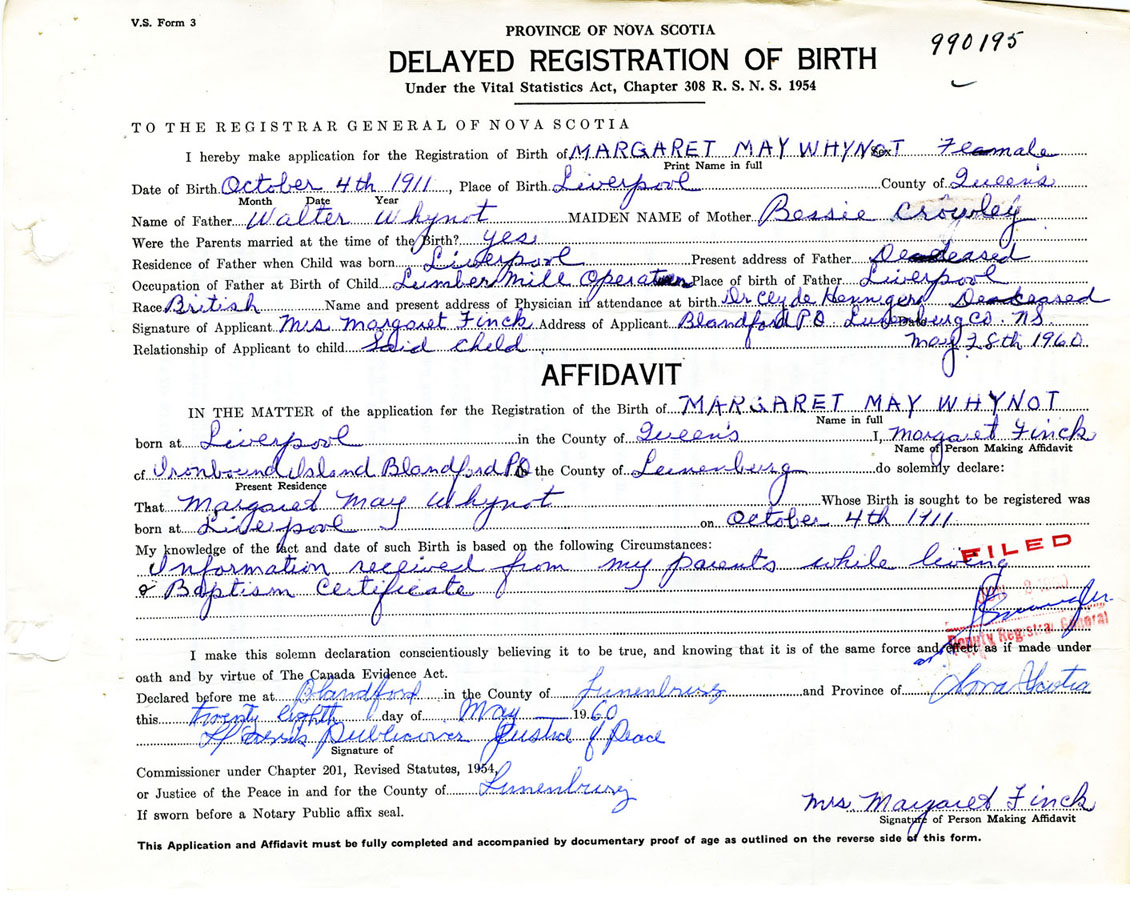 V.S. Form 3
PROVINCE OF NOVA SCOTIA
990195
DELAYED REGISTRATION OF BIRTH
Under the Vital Statistics Act, Chapter 308 R. S. N. S. 1954
TO THE REGISTRAR GENERAL OF NOVA SCOTIA
I hereby make application for the Registration of Birth of MARGARET MAY WHYNOT Sex Female
Print Name in full
Date of Birth October 4th 1911, Place of Birth Liverpool County of Queen's
Month Date Year
Name of Father Walter Whynot MAIDEN NAME of Mother Bessie Crowley
Were the Parents married at the time of the Birth? yes
Residence of Father when Child was born Liverpool Present address of Father Deceased
Occupation of Father at Birth of Child Lumber Mill Operator Place of birth of Father Liverpool
Race British Name and present address of Physician in attendance at birth Dr Clyde Hennigers Deceased
Signature of Applicant Mrs Margaret Finck Address of Applicant Blandford P.O Lunenburg Co. NS
Relationship of Applicant to child Said Child May 28th 1960
AFFIDAVIT
IN THE MATTER of the application for the Registration of the Birth of MARGARET MAY WHYNOT
Name in full
born at Liverpool in the County of Queen's I, Margaret Finck
Name of Person Making Affidavit
of Ironbound Island Blandford PO in the County of Lunenburg do solemnly declare:
Present Residence
That Margaret May Whynot Whose Birth is sought to be registered was
born at Liverpool on October 4th 1911
My knowledge of the fact and date of such Birth is based on the following Circumstances:
Information received from my parents while living
FILED
& Baptism Certificate
Deputy Registrar General
I make this solemn declaration conscientiously believing it to be true, and knowing that it is of the same force and effect as if made under
oath and by virtue of The Canada Evidence Act.
Declared before me at Blandford in the County of Lunenburg and Province of Nova Scotia
this twenty eighth day of May 1960
Publicover Justice of Peace
Signature of
Commissioner under Chapter 201, Revised Statutes, 1954,
or Justice of the Peace in and for the County of Lunenburg
If sworn before a Notary Public affix seal.
Mrs Margaret Finck
Signature of Person Making Affidavit
This Application and Affidavit must be fully completed and accompanied by documentary proof of age as outlined on the reverse side of this form.